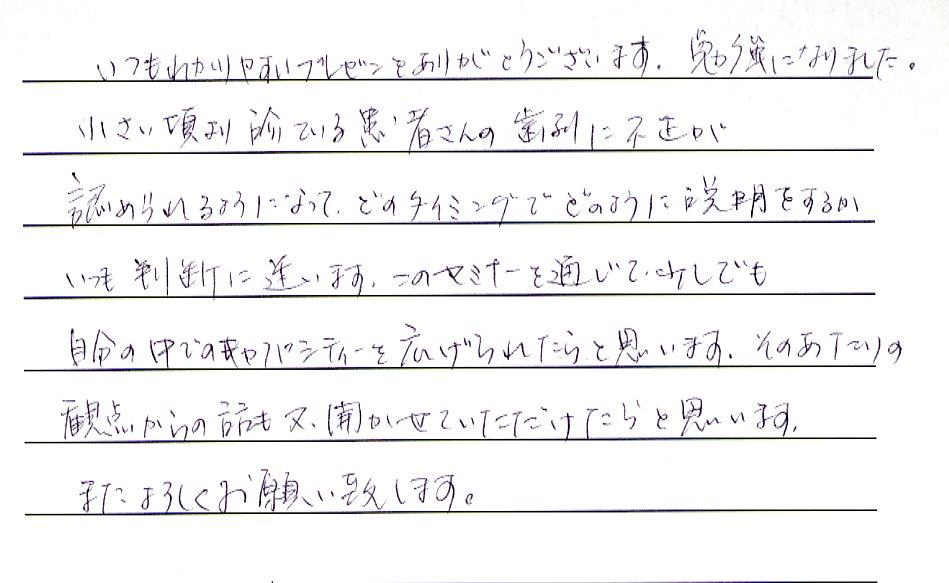 いつもわかりやすいプレゼンをありがとうございます。勉強になりました。
小さい頃より診ている患者さんの歯列に不正が
認められるようになって、どのタイミングでどのように説明をするか
いつも判断に迷います。このセミナーを通じて、少しでも
自分の中でのキャパシティーを広げられたらと思います。そのあたりの
観点からの話も又、聞かせていただけたらと思います。
またよろしくお願い致します。